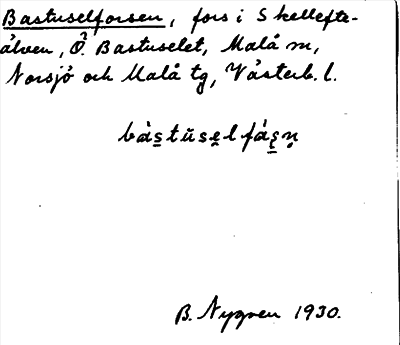 Bastuselforsen, fors i Skellefte-
älven, Ö. Bastuselet, Malå sn,
Norsjö och Malå tg, Västerb. l.
bàstŭselfásn
B. Nygren 1930.